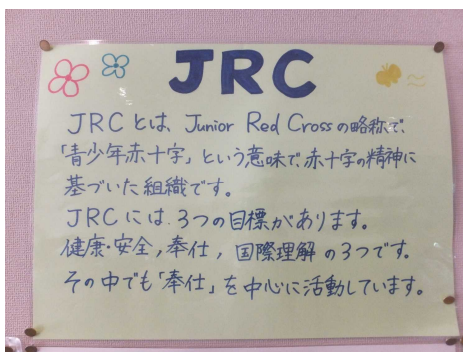 JRC
JRCとは、Junior Red Crossの略称で、
「青少年赤十字」という意味で、赤十字の精神に
基づいた組織です。
JRCには、3つの目標があります。
健康・安全,奉仕,国際理解の3つです。
その中でも「奉仕」を中心に活動しています。